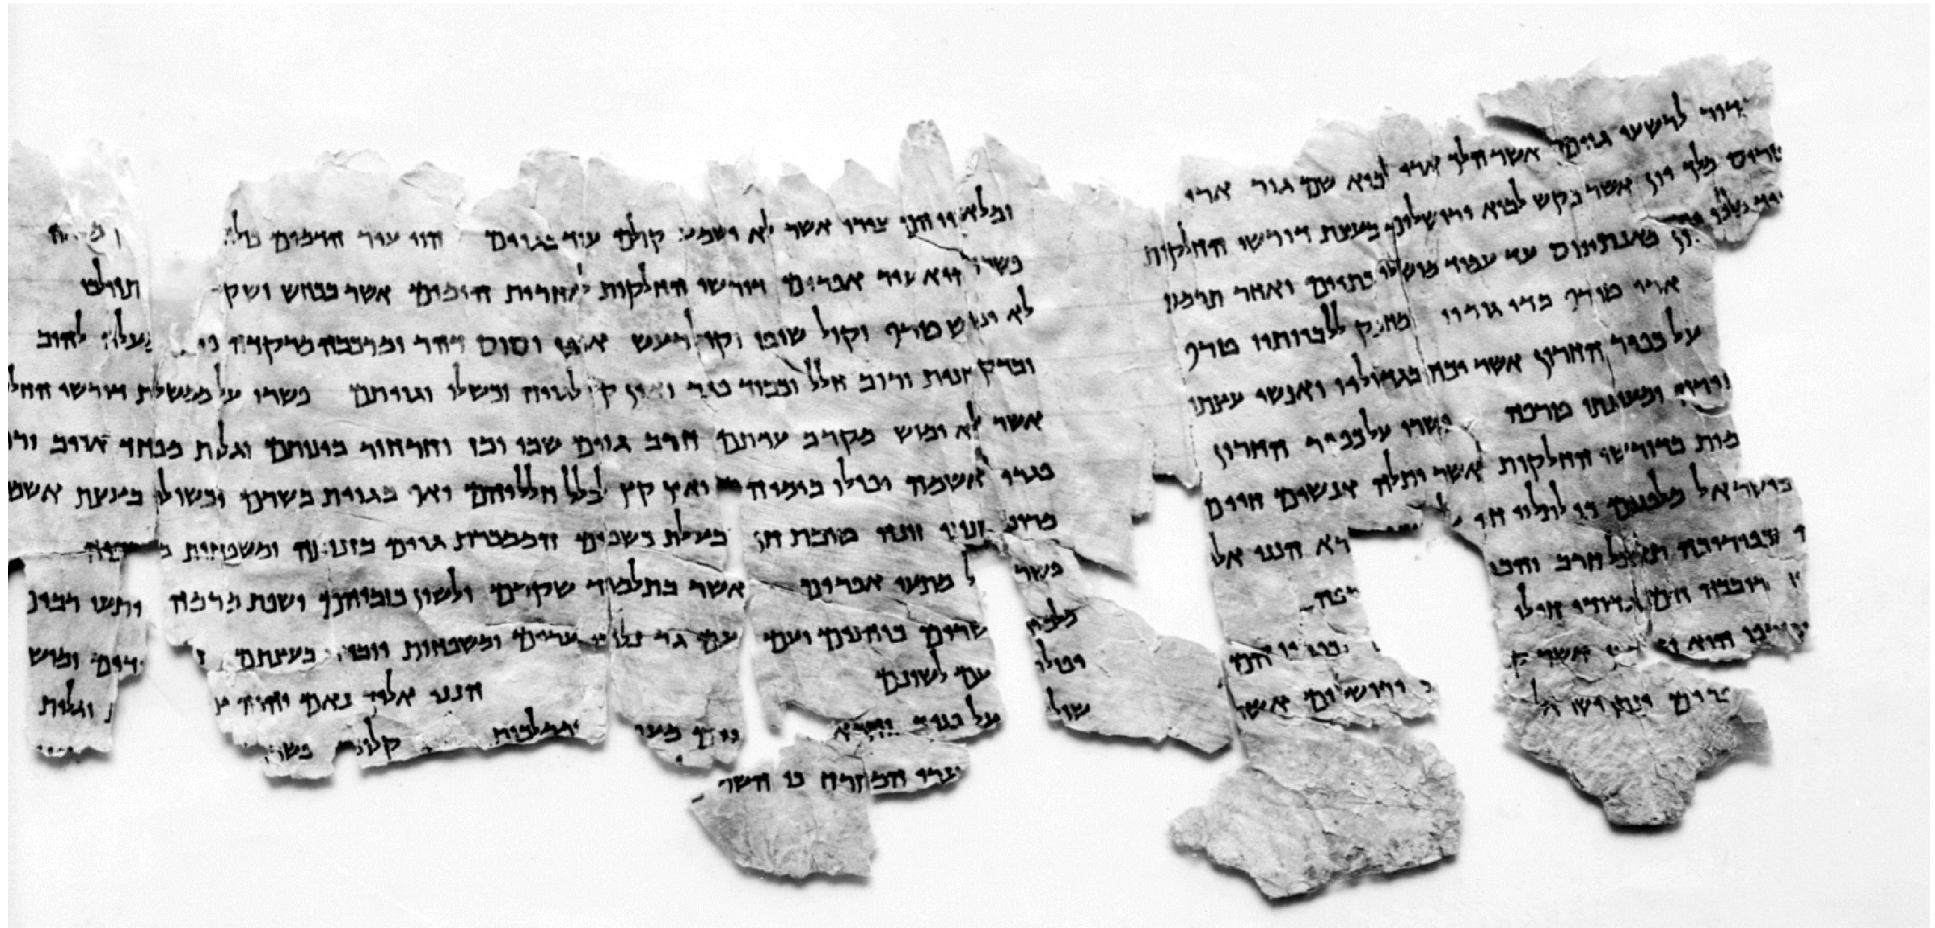 דור לרשעי גוים אשר הלך ארי לבוא שם גור ארי
טרוס מלך יון אשר בקש לבוא ירושלים בעצת דורשי החלקות
יון מאנתיכוס עד עמוד מושלי כתיים ואחר תרמס
ארי טורף בדי גוריו מחנק ללביותיו טרף
על כפיר החרון אשר יכה בגדוליו ואנשי עצתו
ומעונתו טרפה פשרו על כפיר החרון
מות בדורשי החלקות אשר יתלה אנשים חיים
בישראל מלפנים כי לתלוי חי רא הנני אלי
תאכל חרב
רובכה הם גדודי חילו
הוא אשר
ירושלים אשר
רים ינתן
ומלאכיו הם ציריו אשר לא ישמע קולם עוד בגוים הוי עיר הדמים כולה
פשרו היא עיר אפרים דורשי החלקות לאחרית הימים אשר בכחש ושק
לא ימוש טרף וקול שוט וקול רעש אופן וסוס דהר ומרכבה מרקדה מעלה להוב
וברק חנית ורוב חלל וכבוד פגר ואין קץ לגויה וכשלו וגויתם פשרו על ממשלת דורשי החל
אשר לא ימוש מקרב עדתם חרב גוים שבי ובז וחרחור בינותם וגלות מפחד אויב ורו
פגרי אשמה יפולו בימיהם ואין קץ לכלל חלליהם ואף בגוית בשרם יכשולו בעצת אשמ
מרוב זנוני זונה טובת חן בעלת כשפים הממכרת גוים בזנותה ומשפחות
פשר מתעי אפרים אשר בתלמוד שקרם ולשון כזביהם ושפת מרמה יתעו רבים
מלכים שרים כוהנים ועם עם גר נלוה ערים ומשפחות יובדו בעצתם דים ומוש
יפולו עם לשונם הנני אליך נאם יהוה צ וגלית
שולי על פניך והרא גוים מער וממלכות קלונ פשר
ערי המזרח כי השו